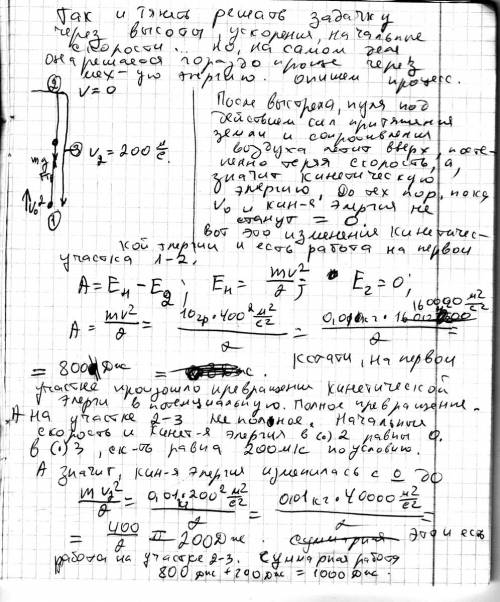 Так и тянет решать задачку
через высоты, ускорения, начальные
скорости... Но, на самом деле
она решается гораздо проще через
мех-ую энергию. Опишем процесс.
②
V=0
② V₂=200 м/с
mg
V₀
①
После выстрела, пуля под
действием сил притяжения
земли и сопротивления
воздуха летит вверх, посте-
пенно теряя скорость, а,
значит кинетическую
энергию. До тех пор, пока
V₀ и кин-я энергия не
станут = 0.
Вот это изменение кинетичес-
кой энергии и есть работа на первом
участке 1-2.
A = Eн - E₂; Eн = mv²/2; E₂ = 0;
A = mv²/2 = 10гр·400² м²/с² / 2 = 0,01кг·160000 м²/с² / 2
= 800 Дж
Кстати, на первом
участке произошло превращение кинетической
энергии в потенциальную. Полное превращение.
А на участке 2-3 не полное. Начальные
скорость и кинет-я энергия в (·) 2 равны 0.
в (·) 3, ск-ть равна 200 м/с по условию.
А значит, кин-я энергия изменилась с 0 до
mv₂²/2 = 0,01·200² м²/с² / 2 = 0,01кг·40000 м²/с² / 2
= 400/2 = 200 Дж. Это и есть
работа на участке 2-3. Суммарная работа
800 Дж + 200 Дж = 1000 Дж.